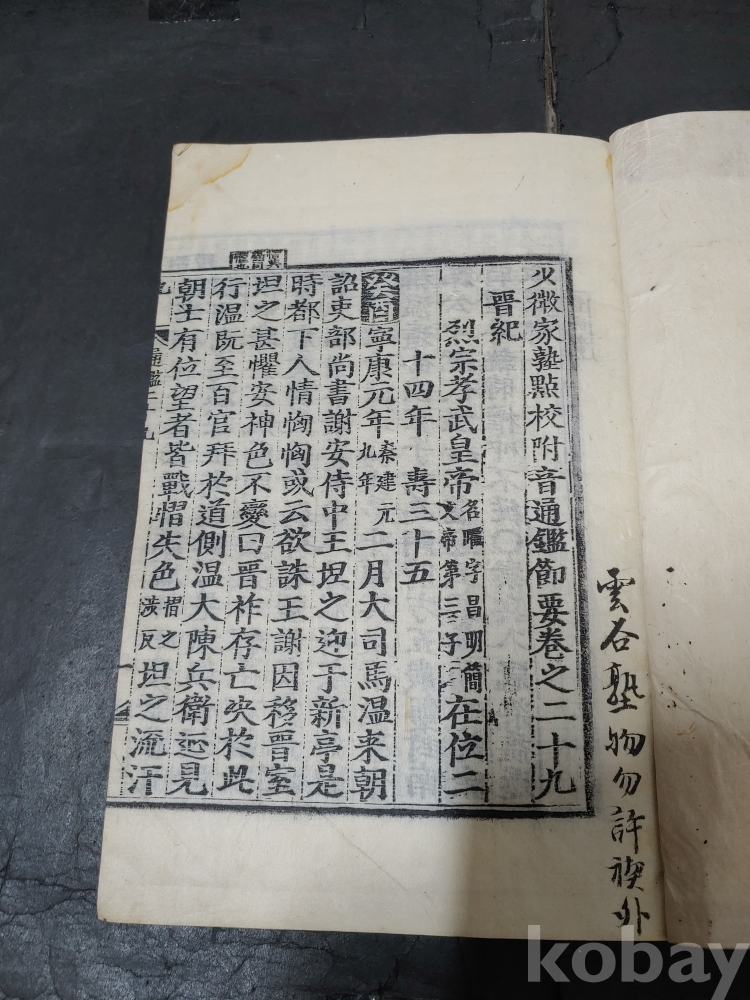 雲谷塾物勿許禊外
少微家塾點校附音通鑑節要卷之二十九
晋紀
烈宗孝武皇帝名曜字昌明簡文帝第三子在位二
十四年 壽三十五
癸酉寧康元年秦建元九年二月大司馬温来朝
詔吏部尚書謝安侍中王坦之迎于新亭是
時都下人情恟恟或云欲誅王謝因移晋室
坦之甚懼安神色不變曰晋祚存亡决於此
行温既至百官拜於道側温大陳兵衛迎見
朝士有位望者皆戰慴失色慴之涉反坦之流汗
通鑑二十九
kobay